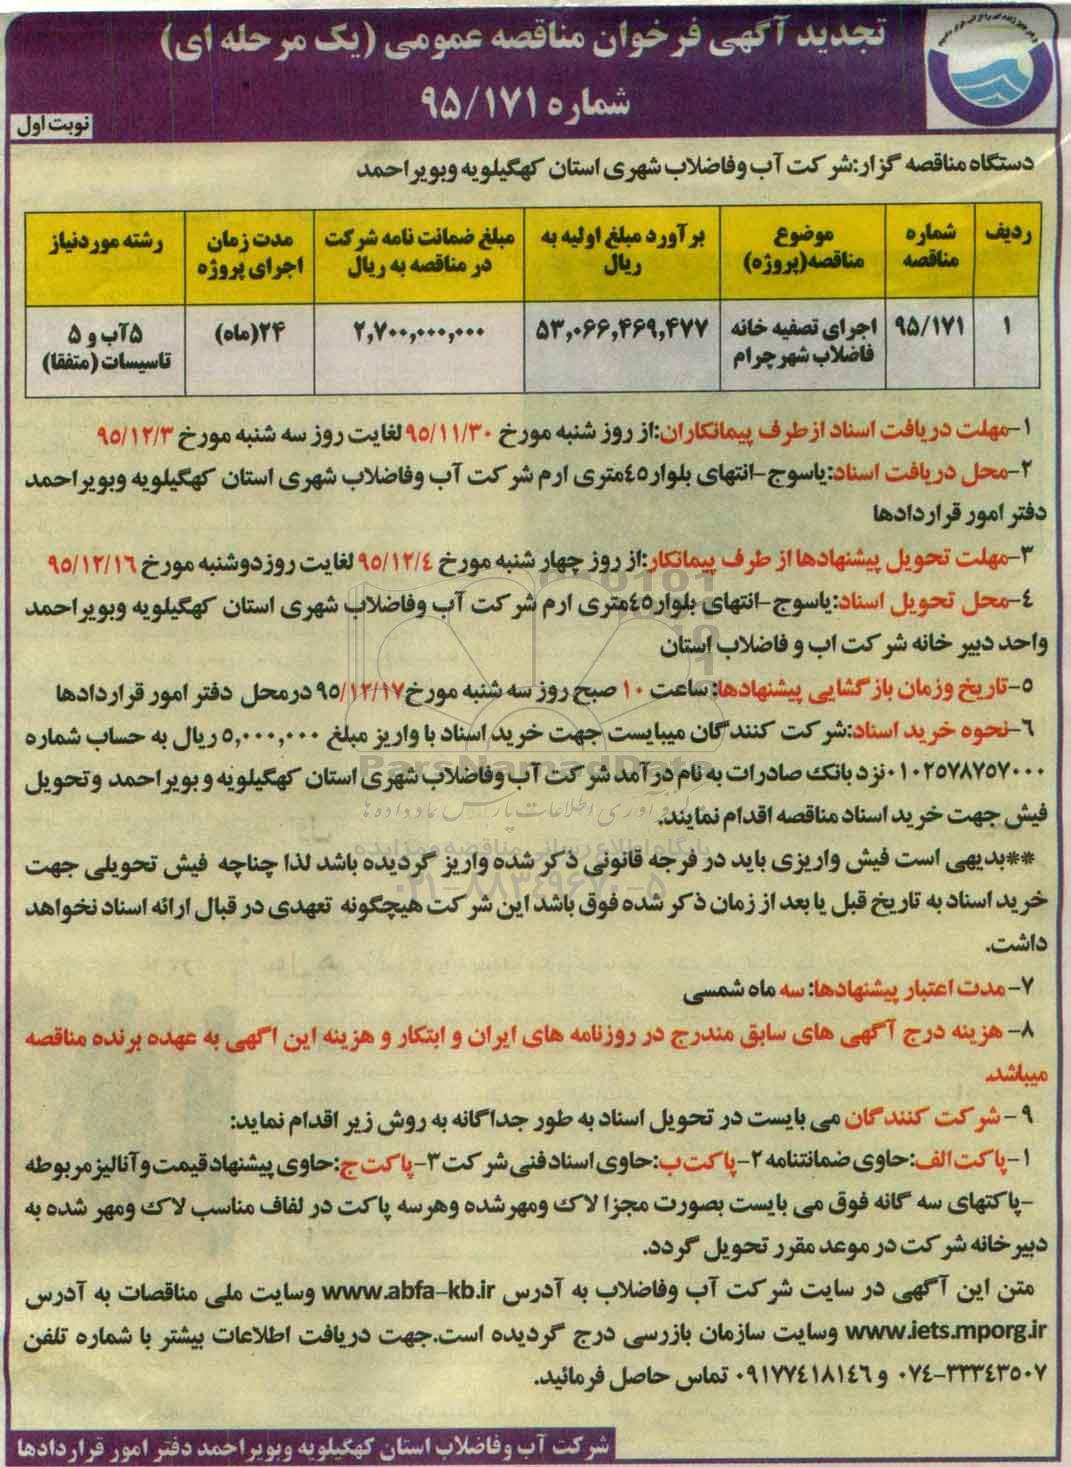 تجدید آگهی فرخوان مناقصه عمومی (یک مرحله ای)
شماره ۹۵/۱۷۱
نوبت اول
دستگاه مناقصه گزار:شرکت آب وفاضلاب شهری استان کهگیلویه وبویراحمد
ردیف
شماره مناقصه
موضوع مناقصه(پروژه)
برآورد مبلغ اولیه به ریال
مبلغ ضمانت نامه شرکت در مناقصه به ریال
مدت زمان اجرای پروژه
رشته موردنیاز
۱
۹۵/۱۷۱
اجرای تصفیه خانه فاضلاب شهرچرام
۵۳,۰۶۶,۴۶۹,۴۷۷
۲,۷۰۰,۰۰۰,۰۰۰
۲۴(ماه)
۵آب و ۵ تاسیسات (متفقا)
۱-مهلت دریافت اسناد ازطرف پیمانکاران:از روز شنبه مورخ ۹۵/۱۱/۳۰ لغایت روز سه شنبه مورخ ۹۵/۱۲/۳
۲-محل دریافت اسناد:یاسوج-انتهای بلوار٤٥متری ارم شرکت آب وفاضلاب شهری استان کهگیلویه وبویراحمد
دفتر امور قراردادها
۳-مهلت تحویل پیشنهادها از طرف پیمانکار:از روز چهار شنبه مورخ ۹۵/۱۲/٤ لغایت روزدوشنبه مورخ ۹۵/۱۲/۱۶
٤-محل تحویل اسناد:یاسوج-انتهای بلوار٤٥متری ارم شرکت آب وفاضلاب شهری استان کهگیلویه وبویراحمد
واحد دبیر خانه شرکت اب و فاضلاب استان
۵-تاریخ وزمان بازگشایی پیشنهادها: ساعت ۱۰ صبح روز سه شنبه مورخ۹۵/۱۲/۱۷ درمحل دفتر امور قراردادها
۶-نحوه خرید اسناد:شرکت کنندگان میبایست جهت خرید اسناد با واریز مبلغ ۵,۰۰۰,۰۰۰ ریال به حساب شماره
۰۱۰۲۵۷۸۷۵۷۰۰۰نزد بانک صادرات به نام درآمد شرکت آب وفاضلاب شهری استان کهگیلویه و بویراحمد وتحویل
فیش جهت خرید اسناد مناقصه اقدام نمایند.
**بدیهی است فیش واریزی باید در فرجه قانونی ذکر شده واریز گردیده باشد لذا چناچه فیش تحویلی جهت
خرید اسناد به تاریخ قبل یا بعد از زمان ذکر شده فوق باشد این شرکت هیچگونه تعهدی در قبال ارائه اسناد نخواهد
داشت.
۷- مدت اعتبار پیشنهادها: سه ماه شمسی
۸- هزینه درج آگهی های سابق مندرج در روزنامه های ایران و ابتکار و هزینه این اگهی به عهده برنده مناقصه
میباشد.
۹- شرکت کنندگان می بایست در تحویل اسناد به طور جداگانه به روش زیر اقدام نماید:
۱-پاکت الف:حاوی ضمانتنامه ۲-پاکت ب:حاوی اسنادفنی شرکت ۳-پاکت ج:حاوی پیشنهادقیمت وآنالیزمربوطه
-پاکتهای سه گانه فوق می بایست بصورت مجزا لاک ومهرشده وهرسه پاکت در لفاف مناسب لاک ومهر شده به
دبیرخانه شرکت در موعد مقرر تحویل گردد.
متن این آگهی در سایت شرکت آب وفاضلاب به آدرس www.abfa-kb.ir وسایت ملی مناقصات به آدرس
www.iets.mporg.ir وسایت سازمان بازرسی درج گردیده است.جهت دریافت اطلاعات بیشتر با شماره تلفن
۰۷٤-۳۳۳٤۳۵۰۷ و ۰۹۱۷۷٤۱۸۱٤۶ تماس حاصل فرمائید.
شرکت آب وفاضلاب استان کهگیلویه وبویراحمد دفتر امور قراردادها
ParsNamadData
پایگاه اطلاع رسانی مناقصه و مزایده
۰۲۱-۸۸۳۴۹۶۷۰-۵